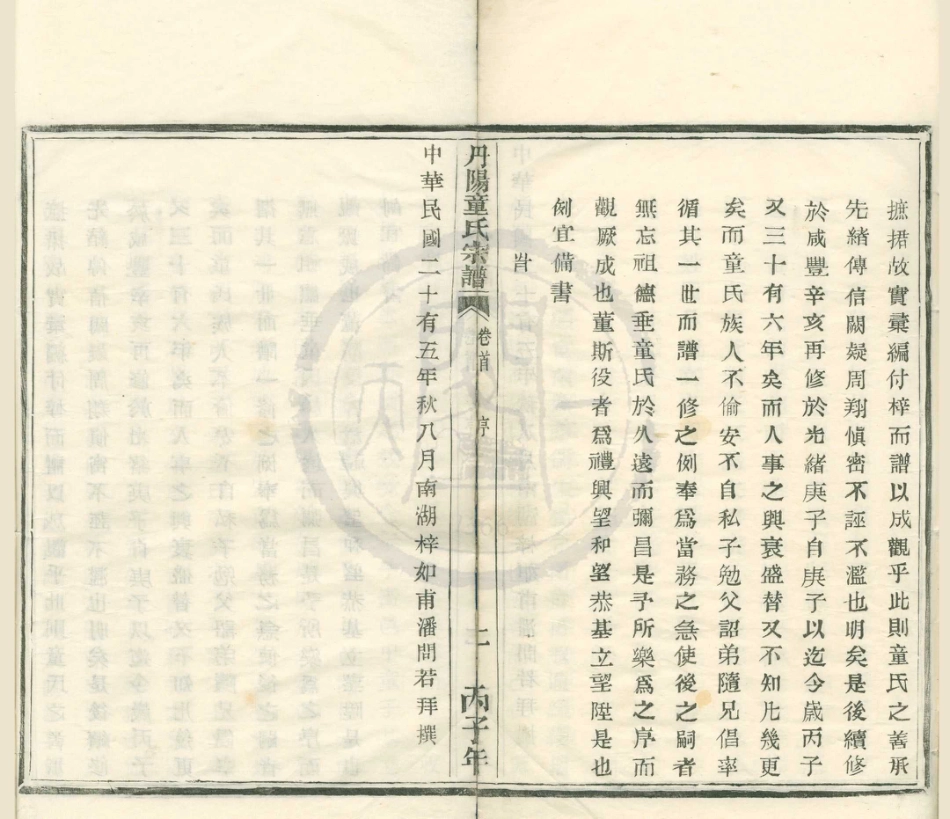 摭捃故實彚編付梓而譜以成觀乎此則童氏之善承
先緒傳信闕疑周翔愼密不誣不濫也明矣是後續修
於咸豐辛亥再修於光緒庚子自庚子以迄今歲丙子
又三十有六年矣而人事之興衰盛替又不知凡幾更
矣而童氏族人不偷安不自私子勉父詔弟隨兄倡率
循其一世而譜一修之例奉爲當務之急使後之嗣者
無忘祖德垂童氏於久遠而彌昌是予所樂爲之序而
觀厥成也董斯役者爲禮興望和望恭基立望陞是也
例宜備書
旹
中華民國二十有五年秋八月南湖梓如甫潘問若拜撰
丹陽童氏宗譜 卷首 序 二 丙子年